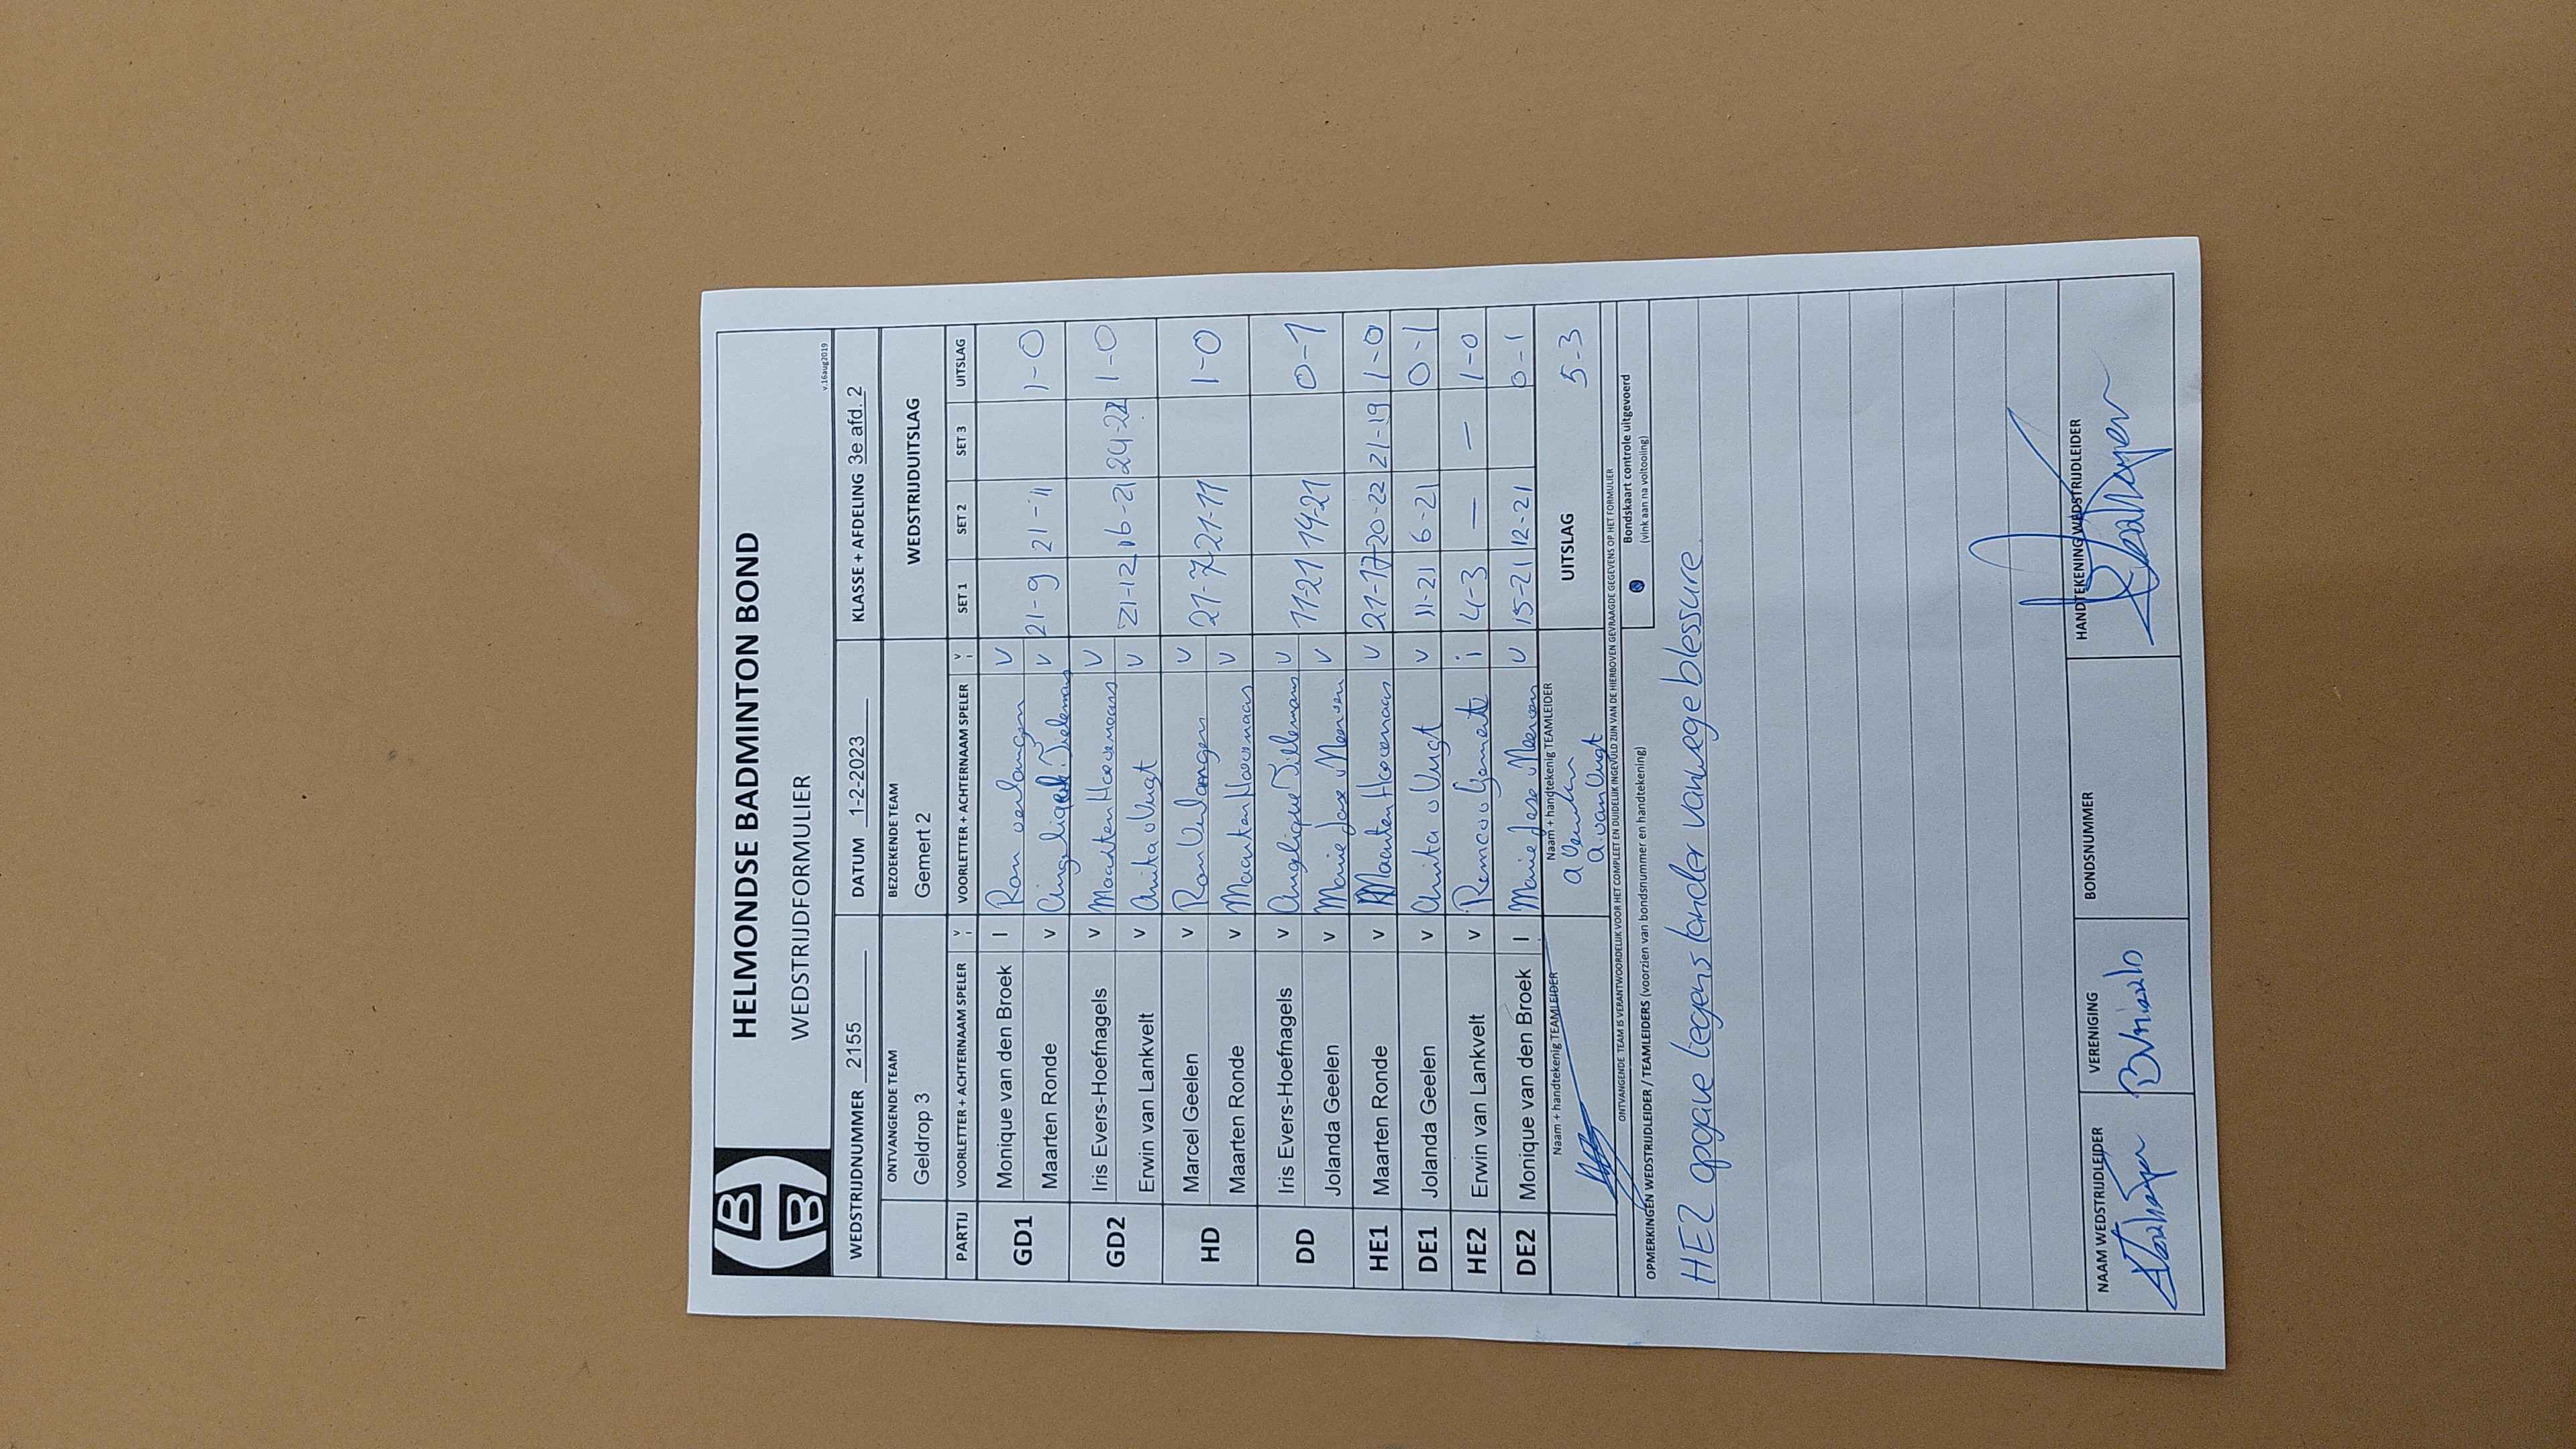 HELMONDSE BADMINTON BOND
WEDSTRIJDFORMULIER
v.16aug2019
WEDSTRIJDNUMMER 2155 DATUM 1-2-2023 KLASSE + AFDELING 3e afd. 2
ONTVANGENDE TEAM BEZOEKENDE TEAM WEDSTRIJDUITSLAG
Geldrop 3 Gemert 2
PARTIJ VOORLETTER + ACHTERNAAM SPELER v i VOORLETTER + ACHTERNAAM SPELER v i SET 1 SET 2 SET 3 UITSLAG
GD1 Monique van den Broek I Ron v
Maarten Ronde v v 21-9 21-11 1-0
GD2 Iris Evers-Hoefnagels v Maarten v
Erwin van Lankvelt v Anita v Vugt v 21-12 16-21 24-22 1-0
HD Marcel Geelen v Ron v 21-7 21-11 1-0
Maarten Ronde v Maarten v
DD Iris Evers-Hoefnagels v Anglique Tillemans v
Jolanda Geelen v Marie Jose v Meersen v 11-21 14-21 0-1
HE1 Maarten Ronde v Maarten v 21-17 20-22 21-19 1-0
DE1 Jolanda Geelen v Anita v Vugt v 11-21 6-21 0-1
HE2 Erwin van Lankvelt v Remco v Gemert i 4-3 – – 1-0
DE2 Monique van den Broek I Marie Jose v 15-21 12-21 0-1
Naam + handtekenig TEAMLEIDER Naam + handtekenig TEAMLEIDER UITSLAG 5-3
A. van Vugt
ONTVANGENDE TEAM IS VERANTWOORDELIJK VOOR HET COMPLEET EN DUIDELIJK INGEVULD ZIJN VAN DE HIERBOVEN GEVRAAGDE GEGEVENS OP HET FORMULIER
Bondskaart controle uitgevoerd
(vink aan na voltooiing)
OPMERKINGEN WEDSTRIJDLEIDER / TEAMLEIDERS (voorzien van bondsnummer en handtekening)
HE2 opgave tegenstander vanwege blessure.
NAAM WEDSTRIJDLEIDER VERENIGING BONDSNUMMER HANDTEKENING WEDSTRIJDLEIDER